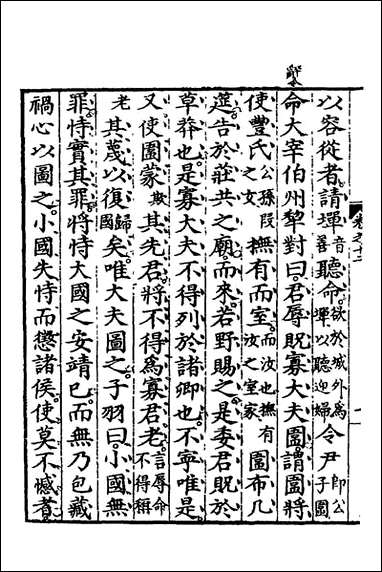 以容從者請墠音善聽命欲於城外爲墠以聽迎婦令尹即公子圍
命大宰伯州犂對曰君辱貺寡大夫圍謂圍將
使豐氏公孫段之女撫有而室而汝也撫有汝之室家圍布几
筵告於莊共之廟而來若野賜之是委君貺於
草莽也是寡大夫不得列於諸卿也不寧唯是
又使圍蒙欺其先君將不得爲寡君老言辱命不得稱
老其蔑以復歸國矣唯大夫圖之子羽曰小國無
罪恃實其罪將恃大國之安靖己而無乃包藏
禍心以圖之小國失恃而懲諸侯使莫不憾者